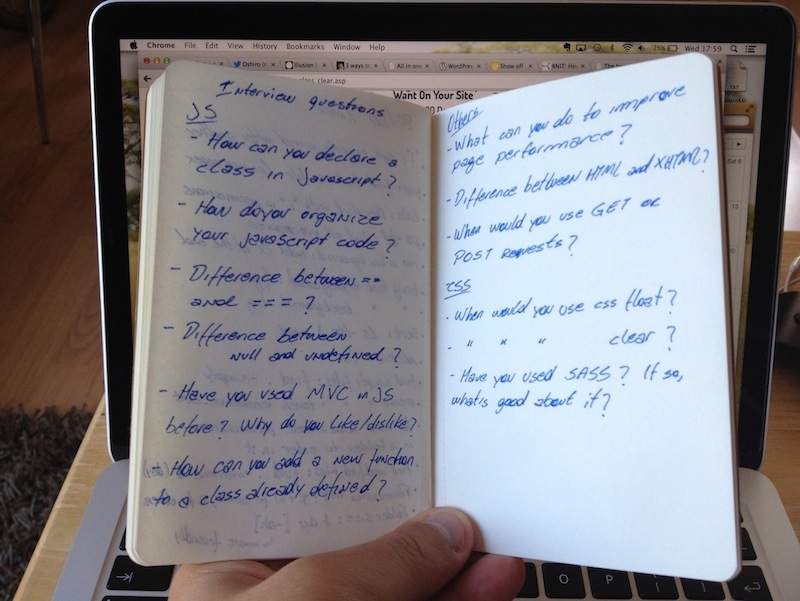 Chrome File Edit View History Bookmarks Window Help
71% Wed 17:59
Oshiro Illusion 3 ways to All in one WordPress Show off RNIT: Ho
class_clear.asp
Want On Your Site
Interview questions
JS
- How can you declare a
class in Javascript?
- How do you organize
your javascript code?
- Difference between ==
and === ?
- Difference between
null and undefined?
- Have you used MVC in JS
before? Why do you like/dislike?
- How can you add a new function
to a class already defined?
Others
- What can you do to improve
page performance?
- Difference between HTML and XHTML?
- When would you use GET or
POST requests?
CSS
- When would you use css float?
- " " " clear?
- Have you used SASS? If so,
what is good about it?